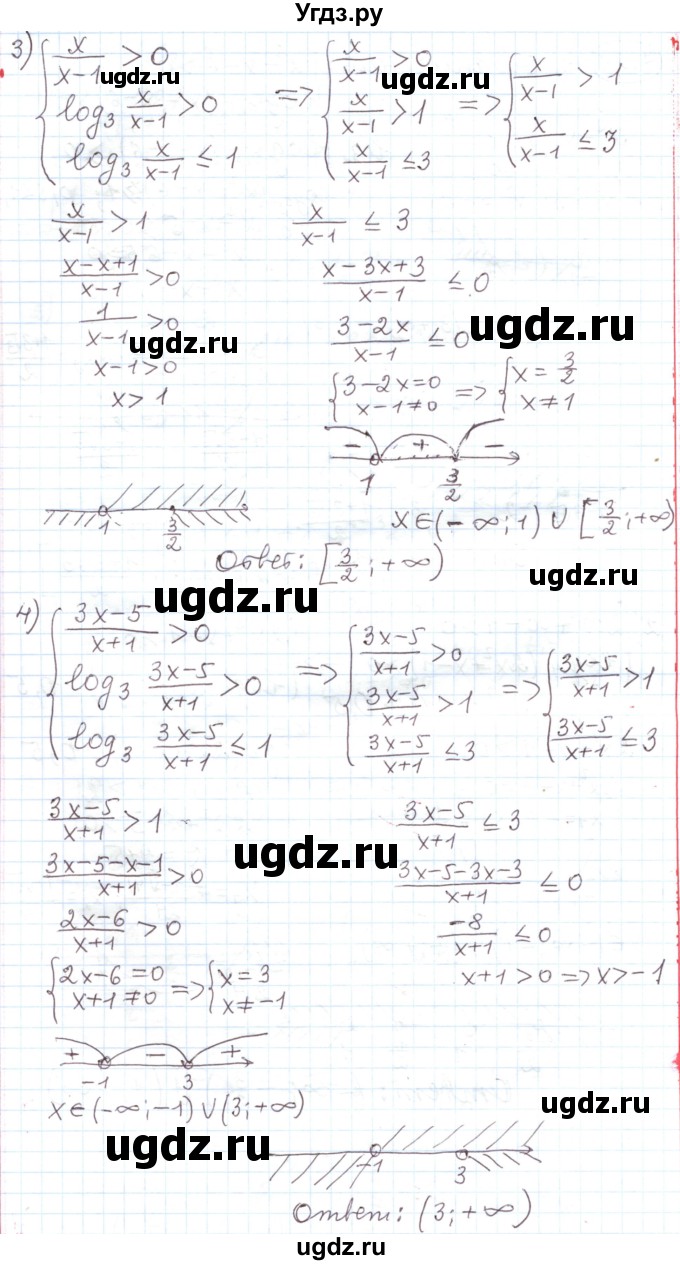 Угдз.ру
3) { x/(x-1) > 0
log₃ x/(x-1) > 0
log₃ x/(x-1) ≤ 1
=> { x/(x-1) > 0
x/(x-1) > 1
x/(x-1) ≤ 3
=> { x/(x-1) > 1
x/(x-1) ≤ 3
ugdz.ru
ugdz.ru
x/(x-1) > 1
(x-x+1)/(x-1) > 0
1/(x-1) > 0
x-1 > 0
x > 1
ugdz.ru
x/(x-1) ≤ 3
(x-3x+3)/(x-1) ≤ 0
(3-2x)/(x-1) ≤ 0
ugdz.ru
{ 3-2x=0
x-1≠0
=> { x = 3/2
x ≠ 1
- + -
1 3/2
1 3/2
x∈(-∞;1) ∪ [3/2;+∞)
Ответ: [3/2;+∞)
ugdz.ru
ugdz.ru
4) { (3x-5)/(x+1) > 0
log₃ (3x-5)/(x+1) > 0
log₃ (3x-5)/(x+1) ≤ 1
=> { (3x-5)/(x+1) > 0
(3x-5)/(x+1) > 1
(3x-5)/(x+1) ≤ 3
=> { (3x-5)/(x+1) > 1
(3x-5)/(x+1) ≤ 3
(3x-5)/(x+1) > 1
(3x-5-x-1)/(x+1) > 0
(2x-6)/(x+1) > 0
{ 2x-6=0
x+1≠0
=> { x=3
x≠-1
ugdz.ru
(3x-5)/(x+1) ≤ 3
(3x-5-3x-3)/(x+1) ≤ 0
-8/(x+1) ≤ 0
x+1 > 0 => x > -1
+ - +
-1 3
x∈(-∞;-1) ∪ (3;+∞)
ugdz.ru
-1 3
Ответ: (3;+∞)
ugdz.ru